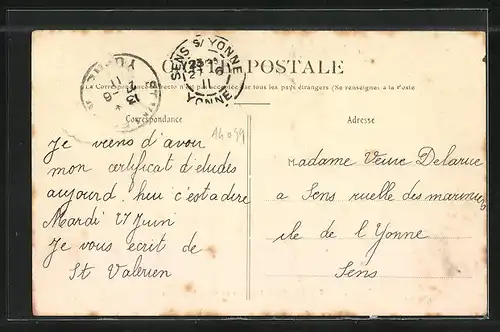 CARTE POSTALE
La Correspondance au recto n'est pas acceptée par tous les pays étrangers (Se renseigner à la Poste
SENS S/ YONNE
YONNE
Correspondance
14099
Adresse
Je viens d'avoir
mon certificat d'études
aujourd. hui c'est a dire
Mardi 27 Juin
Je vous écrit de
St Valerien
Madame Veuve Delarue
a Sens ruelle des mariniers
ile de l'Yonne
Sens